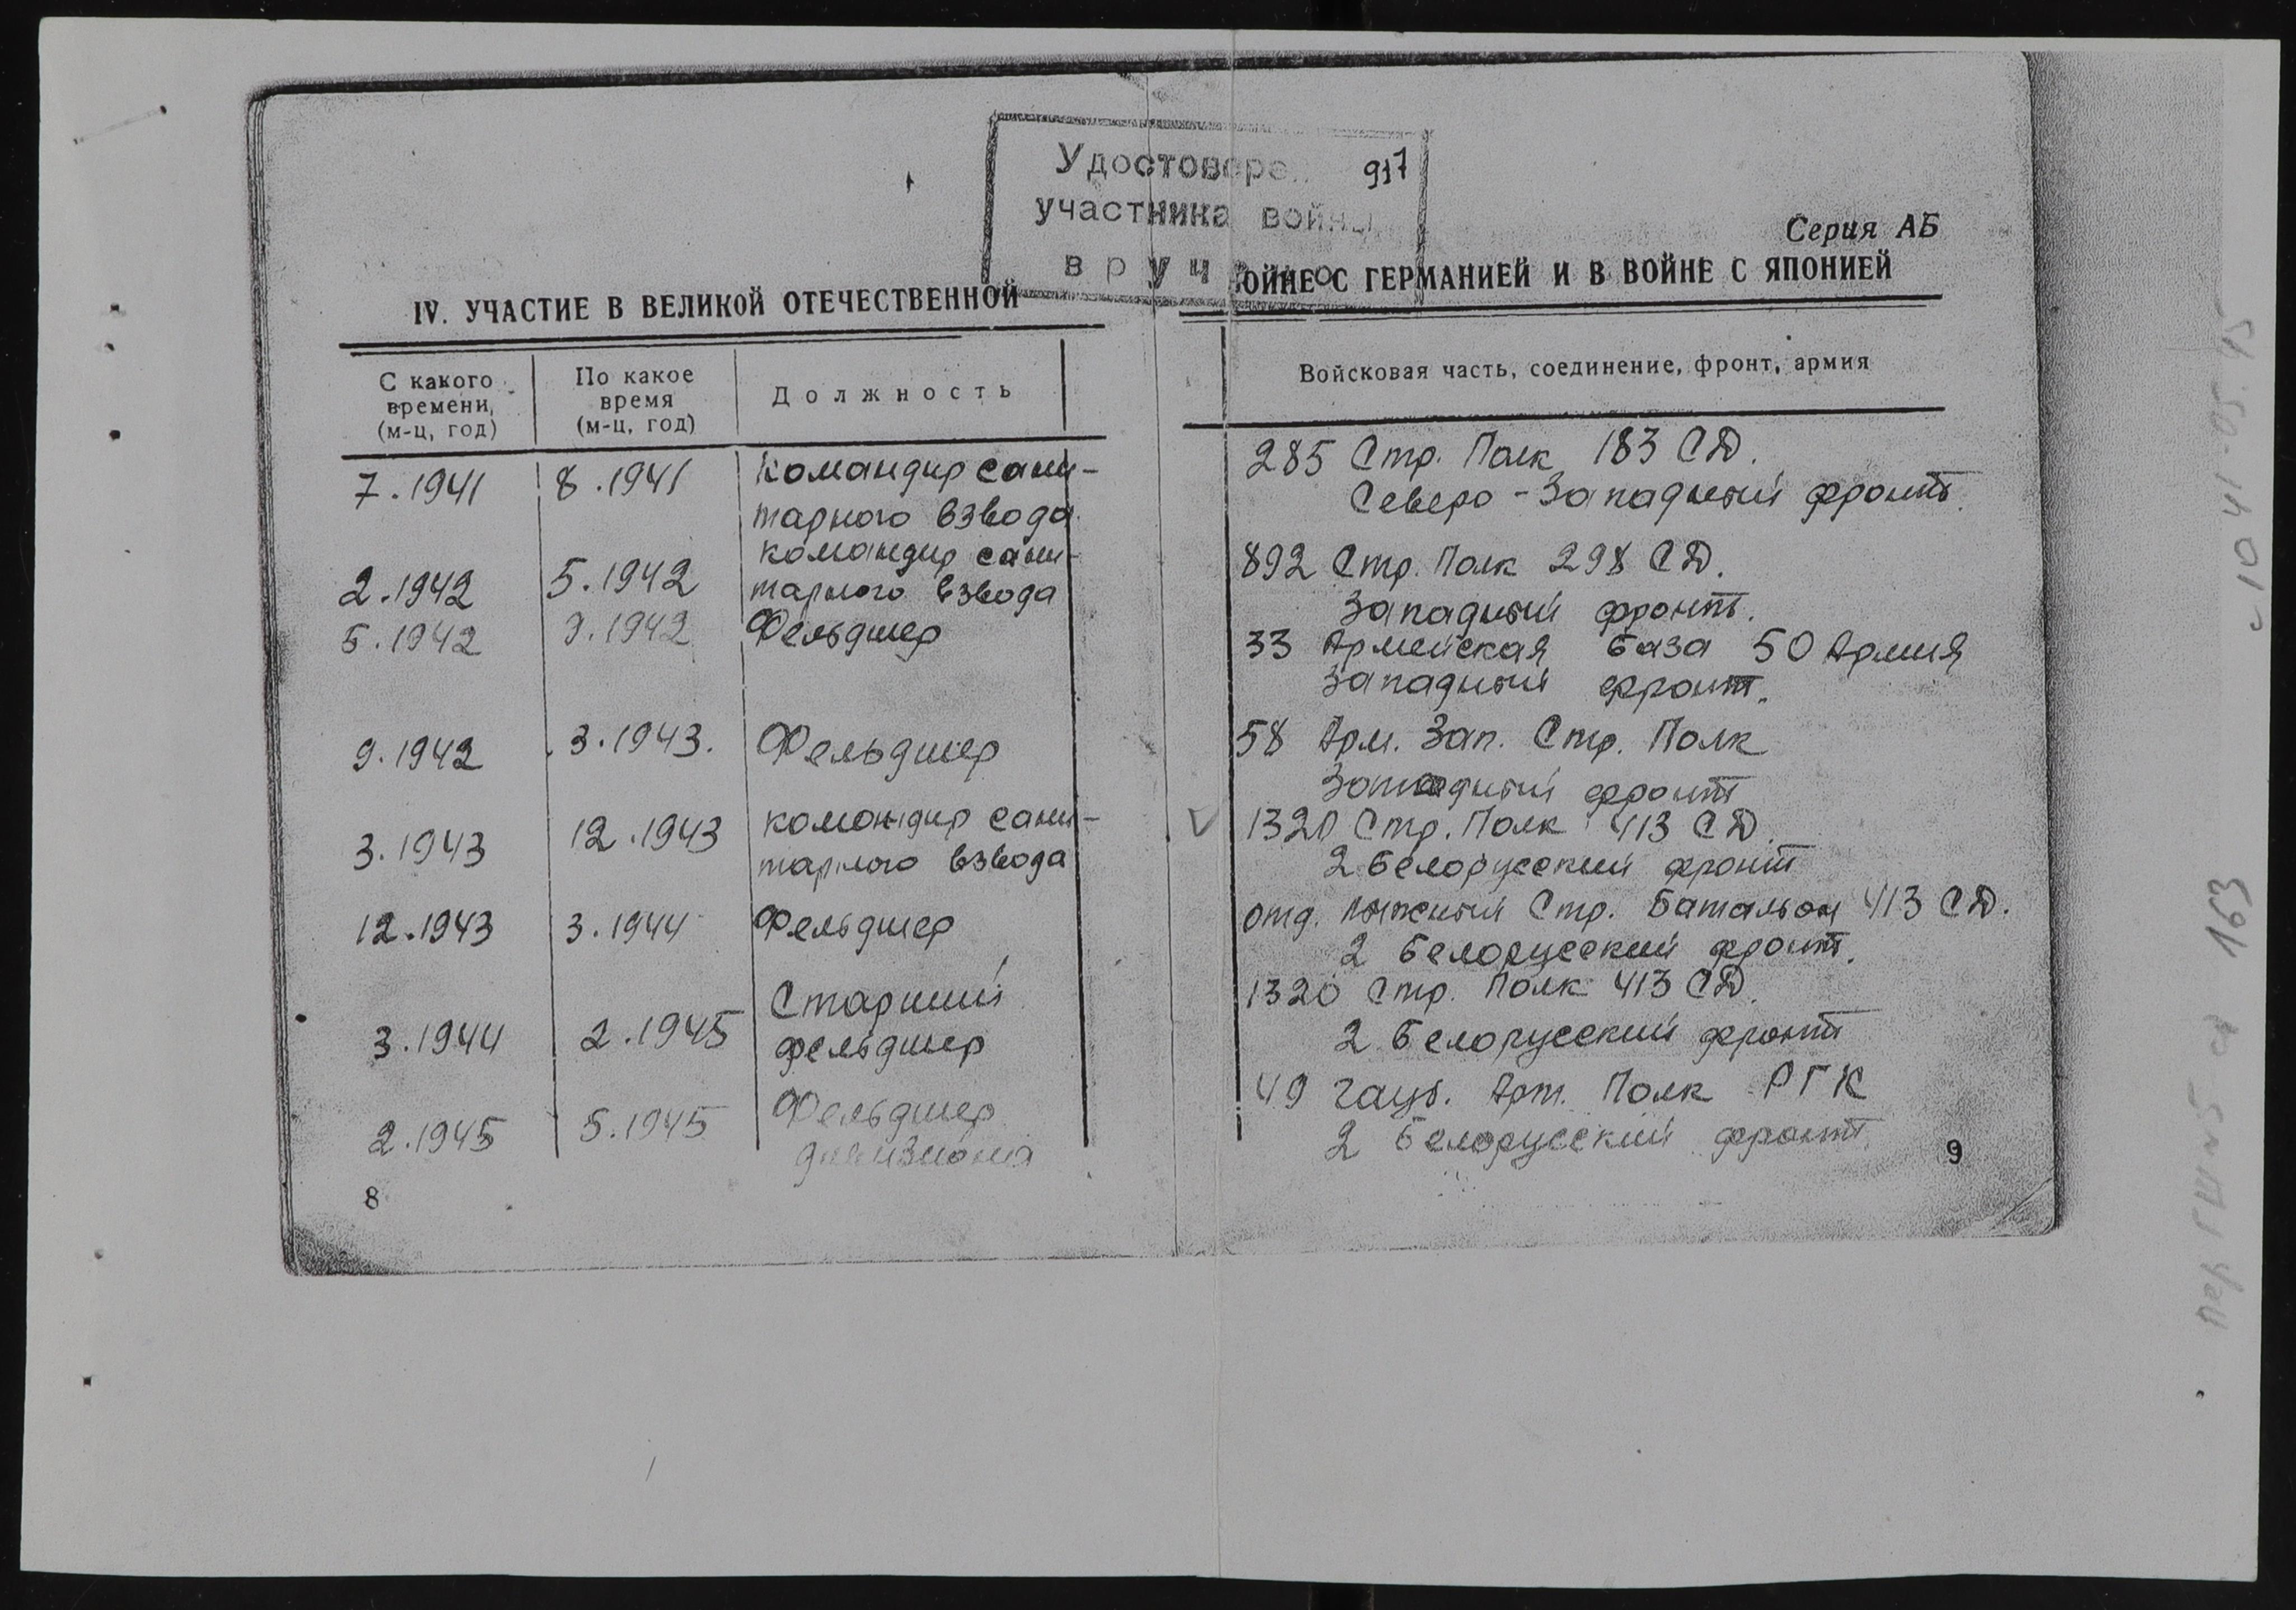 Удостовере 917
участника войны
вруч о
Серия АБ
IV. УЧАСТИЕ В ВЕЛИКОЙ ОТЕЧЕСТВЕННОЙ ОЙНЕ С ГЕРМАНИЕЙ И В ВОЙНЕ С ЯПОНИЕЙ
С какого времени, (м-ц, год)
По какое время (м-ц, год)
Должность
Войсковая часть, соединение, фронт, армия
7.1941 8.1941 Командир сани-
тарного взвода
285 Стр. Полк 183 СД.
Северо-Западный фронт.
2.1942 5.1942 командир сани-
тарного взвода
892 Стр. Полк 298 СД.
Западный фронт.
5.1942 9.1942 Фельдшер
33 Армейская база 50 Армия
Западный фронт.
9.1942 3.1943. Фельдшер
58 Арм. Зап. Стр. Полк
Западный фронт
3.1943 12.1943 командир сани-
тарного взвода
1320 Стр. Полк 413 СД.
2 Белорусский фронт
12.1943 3.1944 Фельдшер
отд. лыжный Стр. Батальон 413 СД.
2 Белорусский фронт.
3.1944 2.1945 Старший
фельдшер
1320 Стр. Полк 413 СД.
2 Белорусский фронт
2.1945 5.1945 Фельдшер
дивизиона
49 гауб. Арт. Полк РГК
2 Белорусский фронт.
8
9
пер ГШ №5 с 163